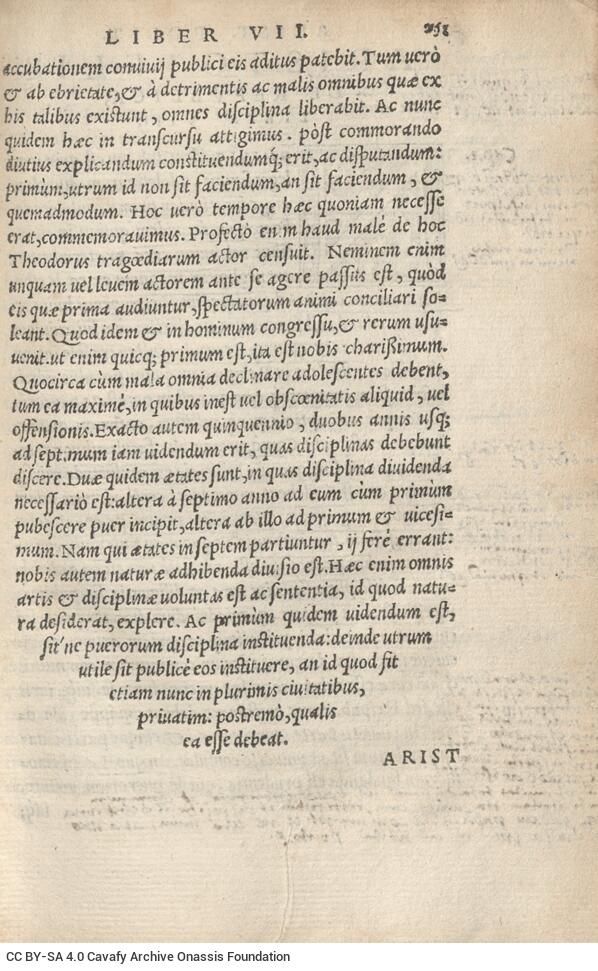 LIBER VII. 258
accubationem conuiuij publici eis aditus patebit. Tum uerò
& ab ebrietate, & à detrimentis ac malis omnibus quæ ex
his talibus existunt, omnes disciplina liberabit. Ac nunc
quidem hæc in transcursu attigimus. pòst commorando
diutius explicandum constituendumq; erit, ac disputandum:
primùm, utrum id non sit faciendum, an sit faciendum, &
quemadmodum. Hoc uerò tempore hæc quoniam necesse
erat, commemorauimus. Profectò enim haud malè de hoc
Theodorus tragœdiarum actor censuit. Neminem enim
unquam uel leuem actorem ante se agere passus est, quòd
eis quæ prima audiuntur, spectatorum animi conciliari so=
leant. Quod idem & in hominum congressu, & rerum usu=
uenit. ut enim quicq; primum est, ita est nobis charißimum.
Quocirca cùm mala omnia declinare adolescentes debent,
tum ea maximè, in quibus inest uel obscœnitatis aliquid, uel
offensionis. Exacto autem quinquennio, duobus annis usq;
ad septimum iam uidendum erit, quas disciplinas debebunt
discere. Duæ quidem ætates sunt, in quas disciplina diuidenda
necessariò est: altera à septimo anno ad eum cùm primùm
pubescere puer incipit, altera ab illo ad primum & uicesi=
mum. Nam qui ætates in septem partiuntur, ij ferè errant:
nobis autem naturæ adhibenda diuisio est. Hæc enim omnis
artis & disciplinæ uoluntas est ac sententia, id quod natu=
ra desiderat, explere. Ac primùm quidem uidendum est,
sit'ne puerorum disciplina instituenda: deinde utrum
utile sit publicè eos instituere, an id quod fit
etiam nunc in plurimis ciuitatibus,
priuatim: postremò, qualis
ea esse debeat.
ARIST
CC BY-SA 4.0 Cavafy Archive Onassis Foundation